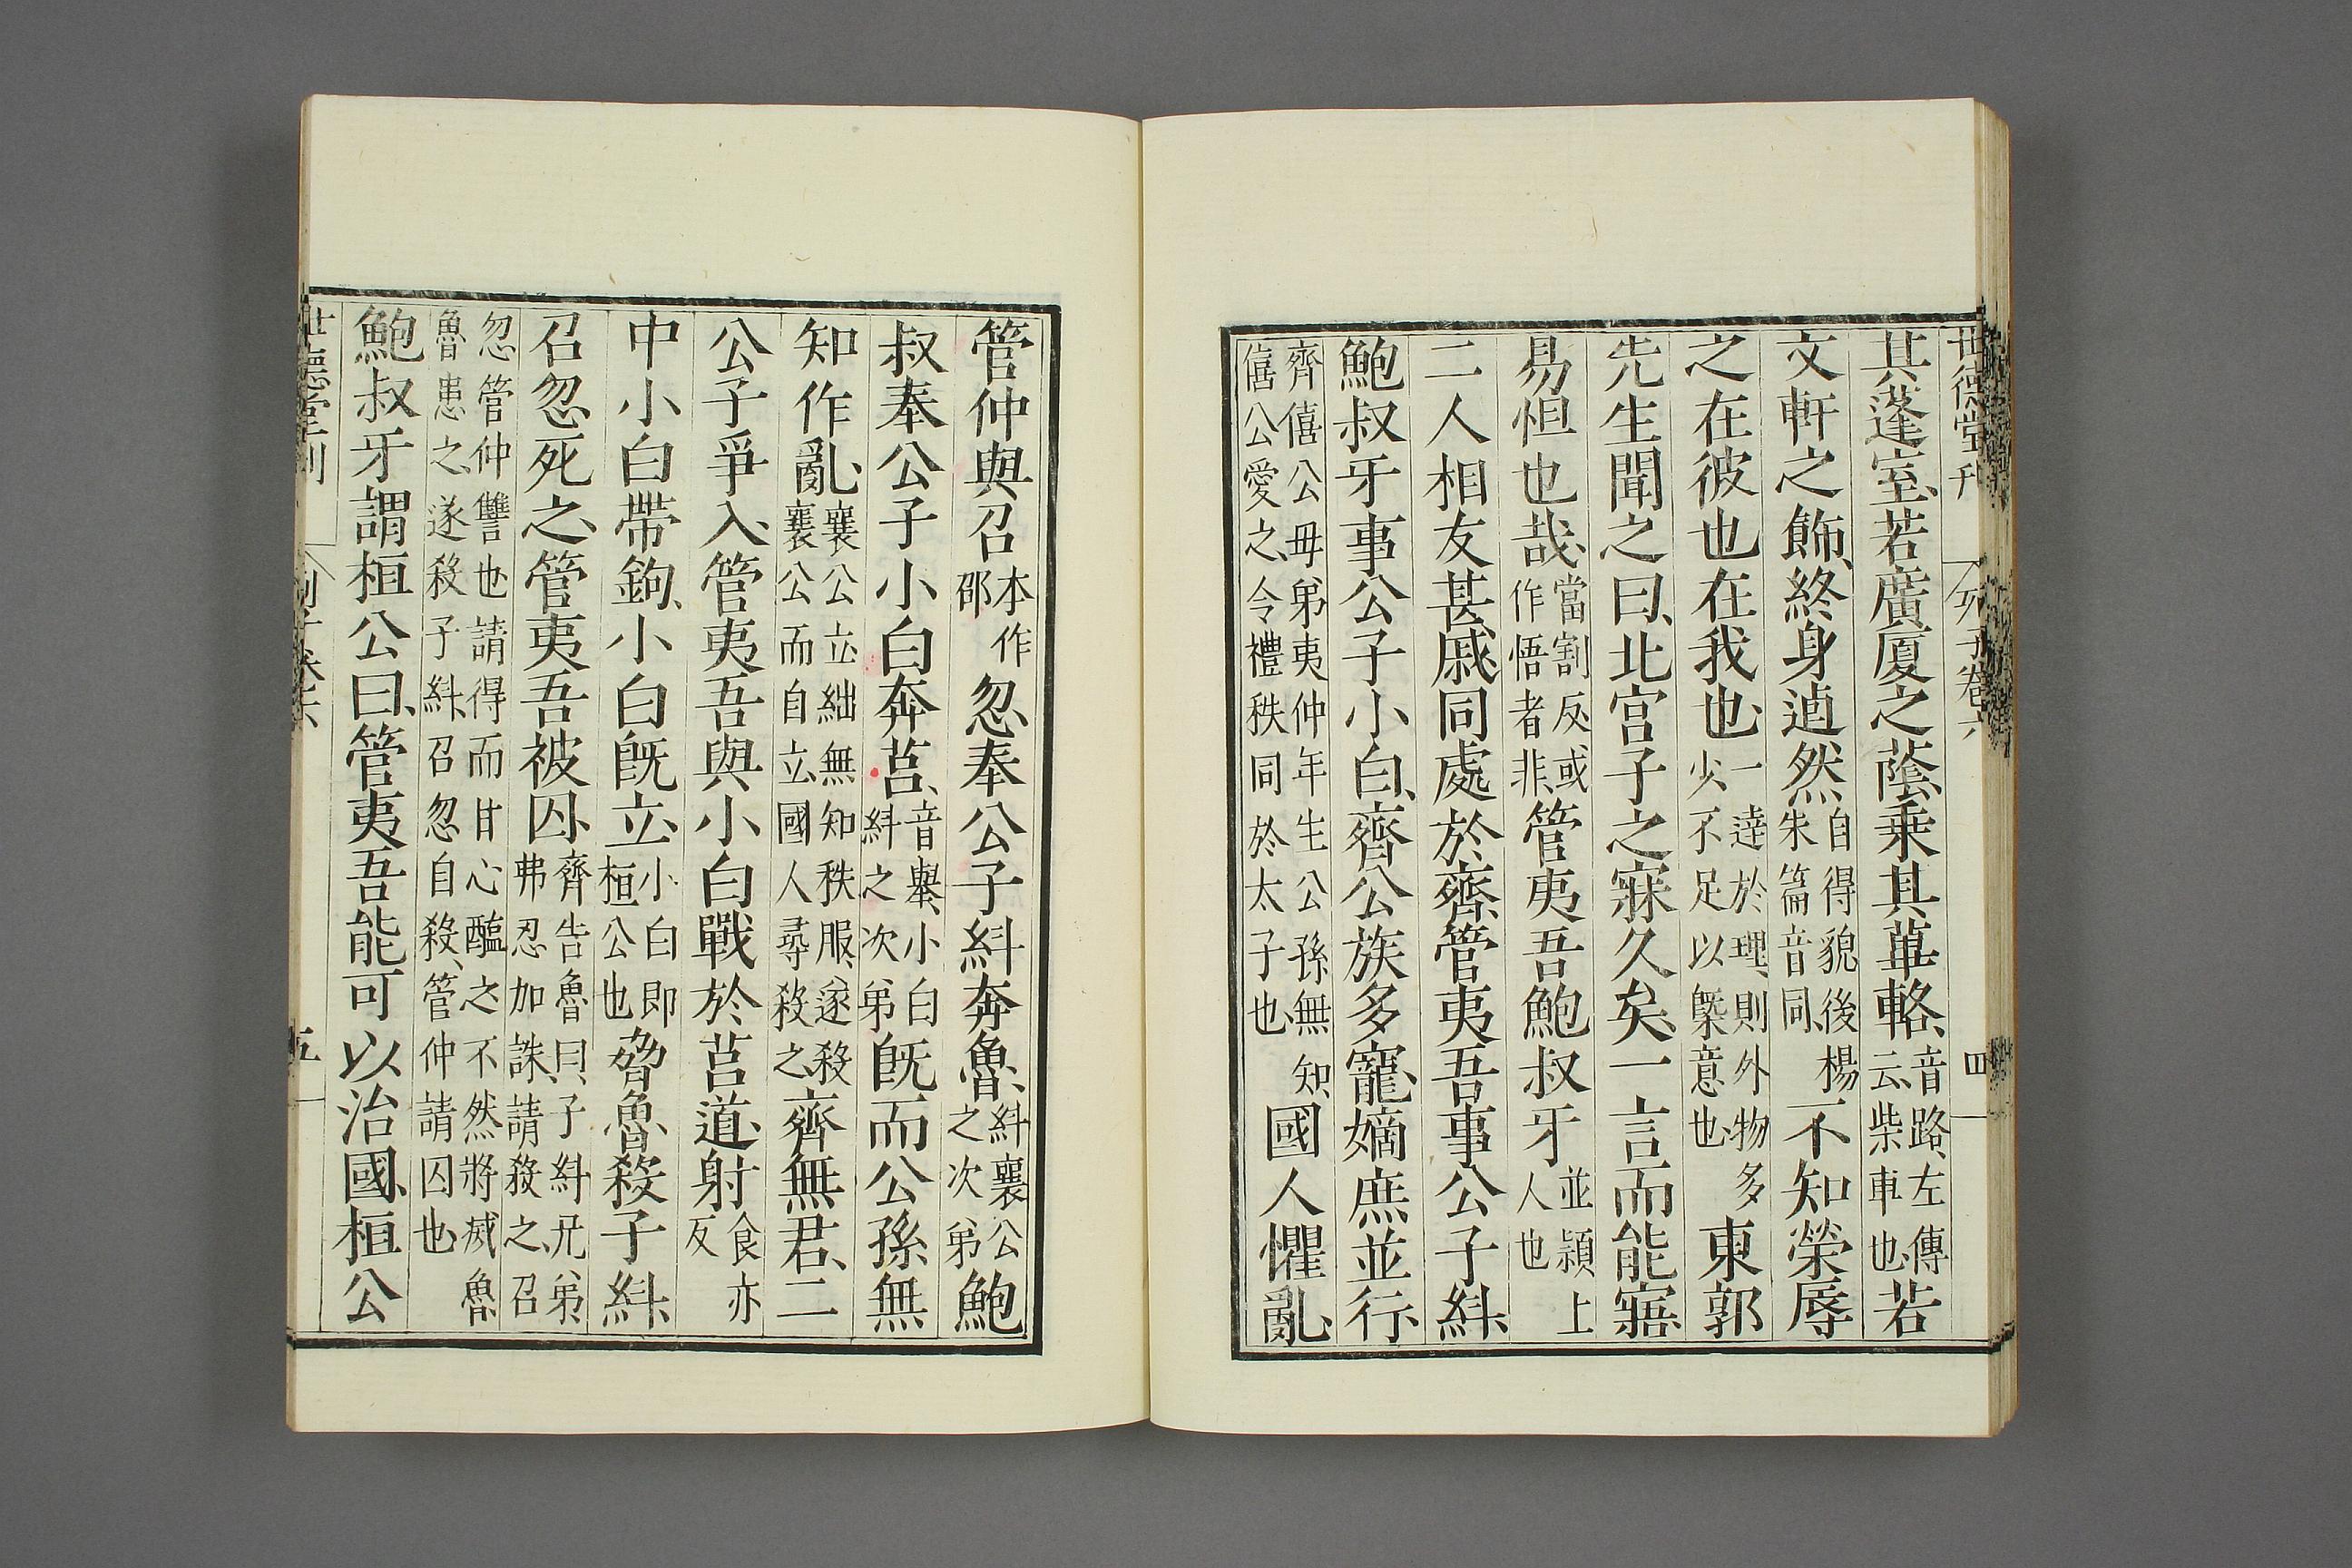 世德堂刊 列子卷六 四
其蓬室、若廣厦之蔭、乗其蓽輅、音路、左傳云、柴車也、若
文軒之飾、終身逌然、自得貌後楊朱篇音同、不知榮辱
之在彼也在我也、一達於理、則外物多少不足以槩意也、東郭
先生聞之曰、北宮子之寐久矣、一言而能寤
易怛也哉、當割反或作悟者非、管夷吾鮑叔牙並潁上人也
二人相友甚戚、同處於齊、管夷吾事公子糾、
鮑叔牙事公子小白、齊公族多寵、嫡庶並行
齊僖公母弟夷仲年生公孫無知、僖公愛之、令禮秩同於太子也、國人懼亂、
管仲與召本作邵忽奉公子糾奔魯、糾襄公之次弟、鮑
叔奉公子小白奔莒、音舉、小白糾之次弟、既而公孫無
知作亂、襄公立絀無知秩服、遂殺襄公而自立、國人尋殺之、齊無君、二
公子爭入、管夷吾與小白戰於莒道、射食亦反
中小白帶鉤、小白既立、小白即桓公也脅魯殺子糾、
召忽死之、管夷吾被囚、齊告魯曰、子糾兄弟、弗忍加誅、請殺之、召
忽管仲讐也、請得而甘心醢之、不然將滅魯、魯患之、遂殺子糾、召忽自殺、管仲請囚也、
鮑叔牙謂桓公曰、管夷吾能可以治國、桓公
世德堂刊 列子卷六 五